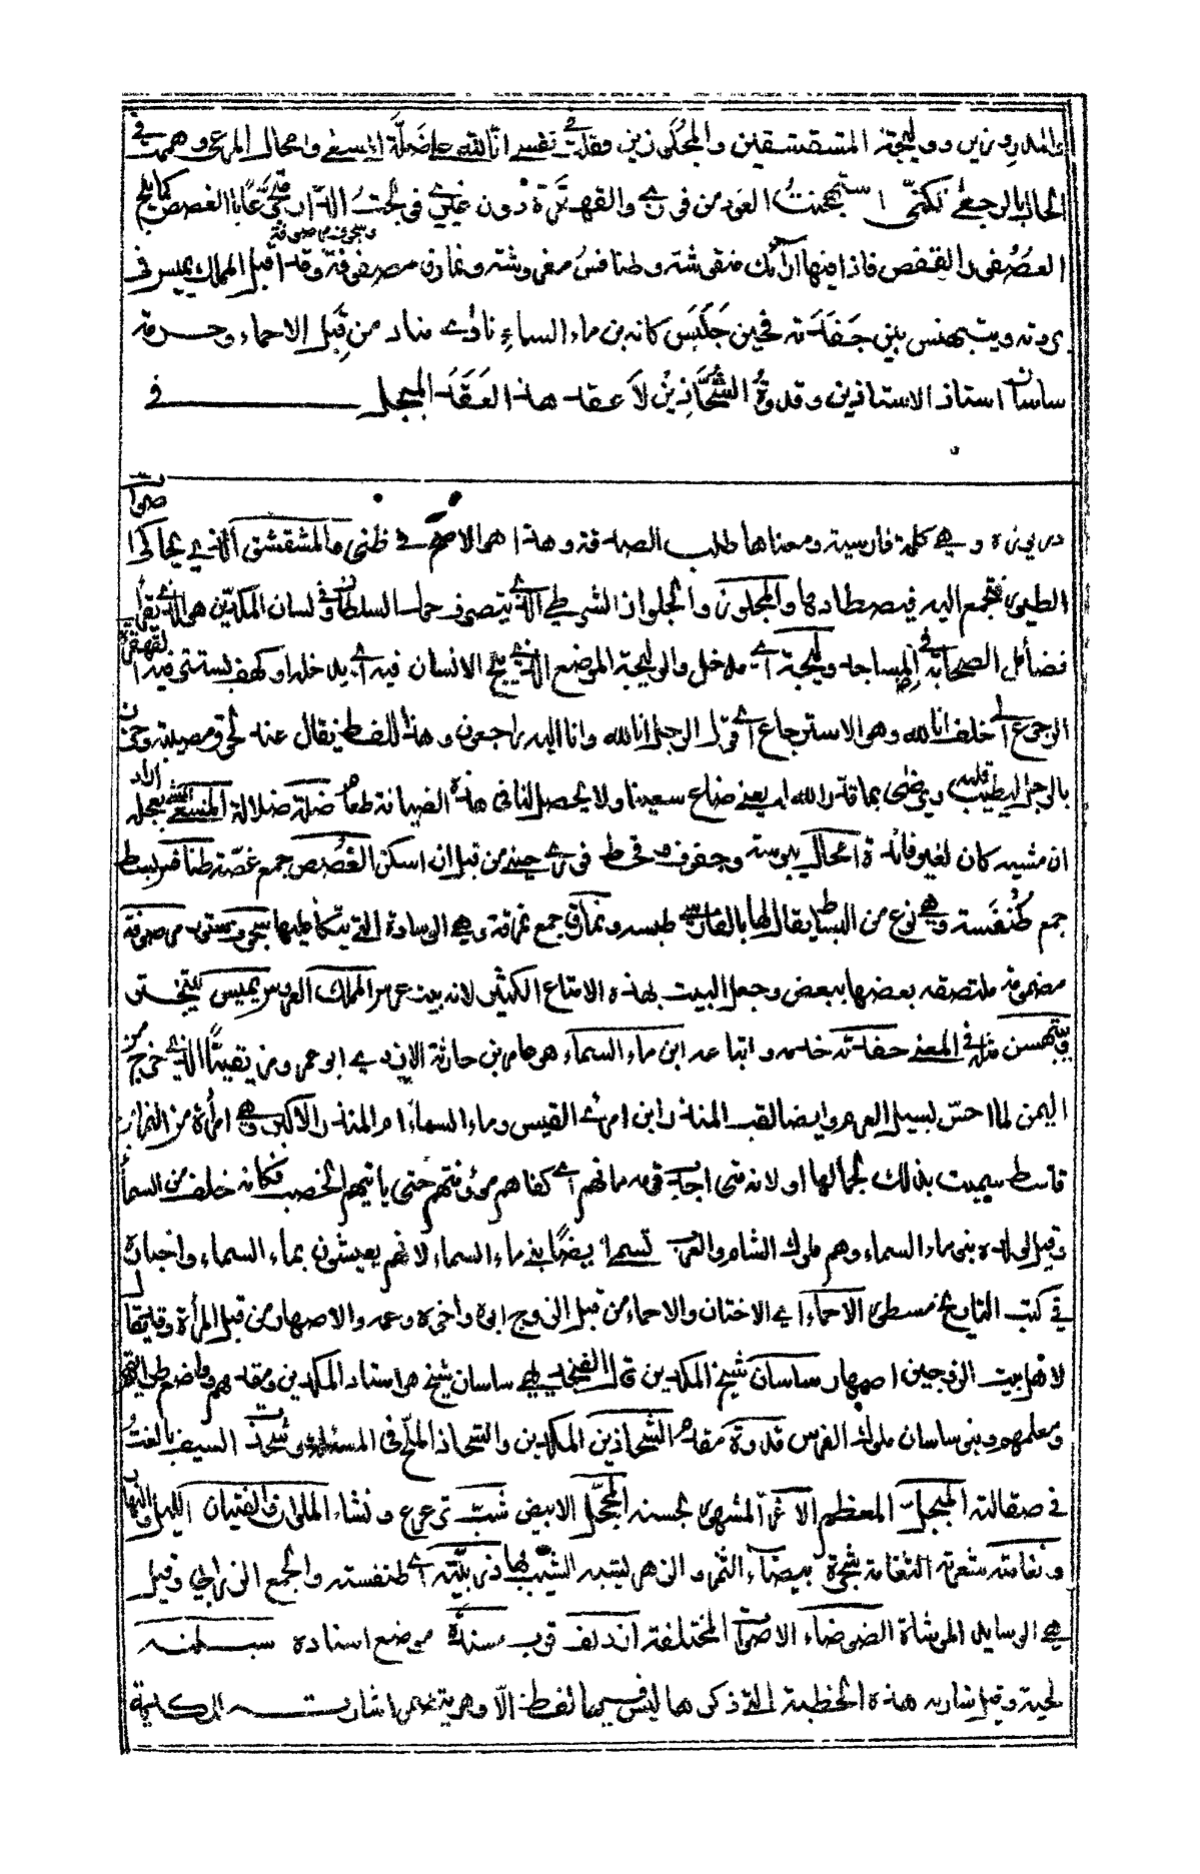 والمدروزين ووليجة المشقشقين والمجلوزين فقلت في نفسي انا لله على ضلة المسعى وامحال المرعى وهممت في
الحال بالرجعى لكني استهجنت العود من فوري والقهقرة دون غيري فولجت الدار متجرعا الغصص كما يلج
العصفور القفص فاذا فيها ارائك منقوشة وطنافس مفروشة ونمارق مصفوفة وسجوف مرصوفة وقد اقبل المملك يميس في
بردته ويتبهنس بين حفدته فحين جلس كانه بن ماء السماء نادى مناد من قبل الاحماء وحرمة
ساسان استاذ الاستاذين وقدوة الشحاذين لا عقد هذا العقد المبجل في
دريوزه وهي كلمة فارسية ومعناها طلب الصدقة وهذا هو الاصح في ظني والمشقشق الذي يحاكي اصوات
الطيور فتجمع اليه فيصطادها والمجلوز والجلواز الشرطي الذي يتصرف السلطان وفي لسان المكدين هو الذي يقرأ
فضائل الصحابة في المساجد وليجة اي مدخل والوليجة الموضع الذي يلج الانسان فيه اي يدخله او كهف يستتر فيه القهقرة
الرجوع الى خلف انا لله وهو الاسترجاع اي قول الرجل انا لله وانا اليه راجعون وهذا اللفظ يقال عند لحوق مصيبة وحزن
بالرجل ليطيب قلبه ويرضى بما قدر الله يعني ضاع سعينا ولا يحصل لنا في هذه الضيافة طعام ضلة ضلالة المسعى اراد بعجلة
ان مشيه كان لغير فائدة امحال يبوسة وجفوف وقحط فوري حيني من قبل ان اسكن الغصص جمع غصة طنافس بسط
جمع طنفسة وهي نوع من البسط يقال لها بالفارسي ونمارق جمع نمرقة وهي الوسادة التي يتكأ عليها سجوف ستور مرصوفة
مضمومة ملتصقة بعضها ببعض وجعل البيت بهذه الامتاع الكثير لانه بيت عرس المملك العروس يميس يتبختر
ويتبهنس مثله في المعنى حفدته خدمه واتباعه ابن ماء السماء هو عامر بن حارثة الازدي ابو عمرو مزيقيا الذي خرج من
اليمن لما احس بسيل العرم وايضا لقب المنذر ابن امرئ القيس وماء السماء ام المنذر الاكبر وهي امرأة من النمر بن
قاسط سميت بذلك لجمالها او لانه متى اجدب قومه مانهم اي كفاهم مؤنتهم حتى ياتيهم الخصب فكانه خلف من السماء
وقيل لولده بني ماء السماء وهم ملوك الشام والعرب تسمى ايضا بني ماء السماء لانهم يعيشون بماء السماء واخباره
في كتب التاريخ مسطور الاحماء اي الاختان والاحماء من قبل الزوج ابوه واخوه وعمه والاصهار من قبل المرأة وقد يقال
لاهل بيت الزوجين اصهار ساسان شيخ المكدين قال الفنجديهي ساسان شيخ هو استاد المكدين ومقدمهم وواضع طريقتهم
ومعلمهم وبنو ساسان ملوك الفرس قدوة مقدم الشحاذين المكدين والشحاذ الملح في المسئلة وشحذت السيف بالغت
في صقالته المبجل المعظم الاغر المشهور لحسنه المحجل الابيض شب ترعرع ونشاء الملوان والفتيان الليل والنهار
وثغامته شعرته الثغامة شجرة بيضاء الثمر والزهر يشبه الشيب بها زربيته اي طنفسته والجمع الزرابي وقيل
هي الوسايد الموشاة الضوضاء الاصوات المختلفة ازدلف قرب مسنده موضع اسناده سبلته
لحية وقيل شاربه هذه الخطبة التي ذكرها ليس فيها لفظ الا وهو يتضمن اشارته الى كدية